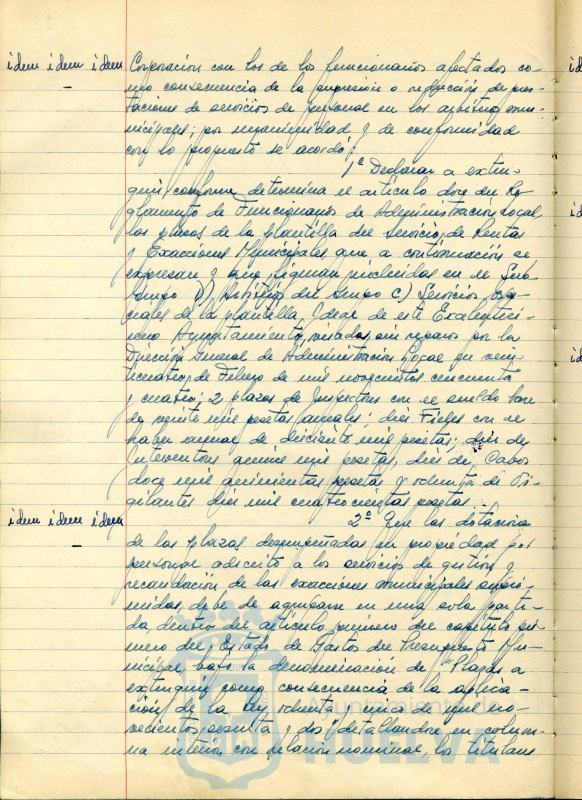 idem idem idem Corporación con los de los funcionarios afectados co-
mo consecuencia de la supresión o reducción de pres-
taciones de servicios de personal en los arbitrios mu-
nicipales; por unanimidad y de conformidad
con lo propuesto se acordó:
1º Declarar a extin-
guir, conforme determina el artículo doce del Re-
glamento de Funcionarios de Administración Local
las plazas de la plantilla del Servicio de Rentas
y Exacciones Municipales que a continuación se
expresan y que figuran incluidas en el Sub-
grupo D) Arbitrios del Grupo C) Servicios Espe-
ciales de la plantilla ideal de este Excelentísi-
mo Ayuntamiento, visada sin reparos por la
Dirección General de Administración Local en vein-
ticuatro de Febrero de mil novecientos cincuenta
y cuatro; 2 plazas de Inspectores con el sueldo ba-
de veinte mil pesetas anuales; diez Fieles con el
haber anual de dieciseis mil pesetas; diez de
Interventores quince mil pesetas, diez de Cabos
doce mil quinientas pesetas y ochenta de Vi-
gilantes diez mil cuatrocientas pesetas.
idem idem idem 2º Que las dotaciones
de las plazas desempeñadas en propiedad por
personal adscrito a los servicios de gestión y
recaudación de las exacciones municipales supri-
midas, debe de agruparse en una sola parti-
da, dentro del artículo primero del capítulo pri-
mero del Estado de Gastos del Presupuesto Mu-
nicipal bajo la denominación de "Plazas a
extinguir como consecuencia de la aplica-
ción de la ley ochenta y cinco de mil no-
vecientos sesenta y dos" detallandose en colum-
na interior con relación nominal, los titulares
AYUNTAMIENTO DE
HUELVA